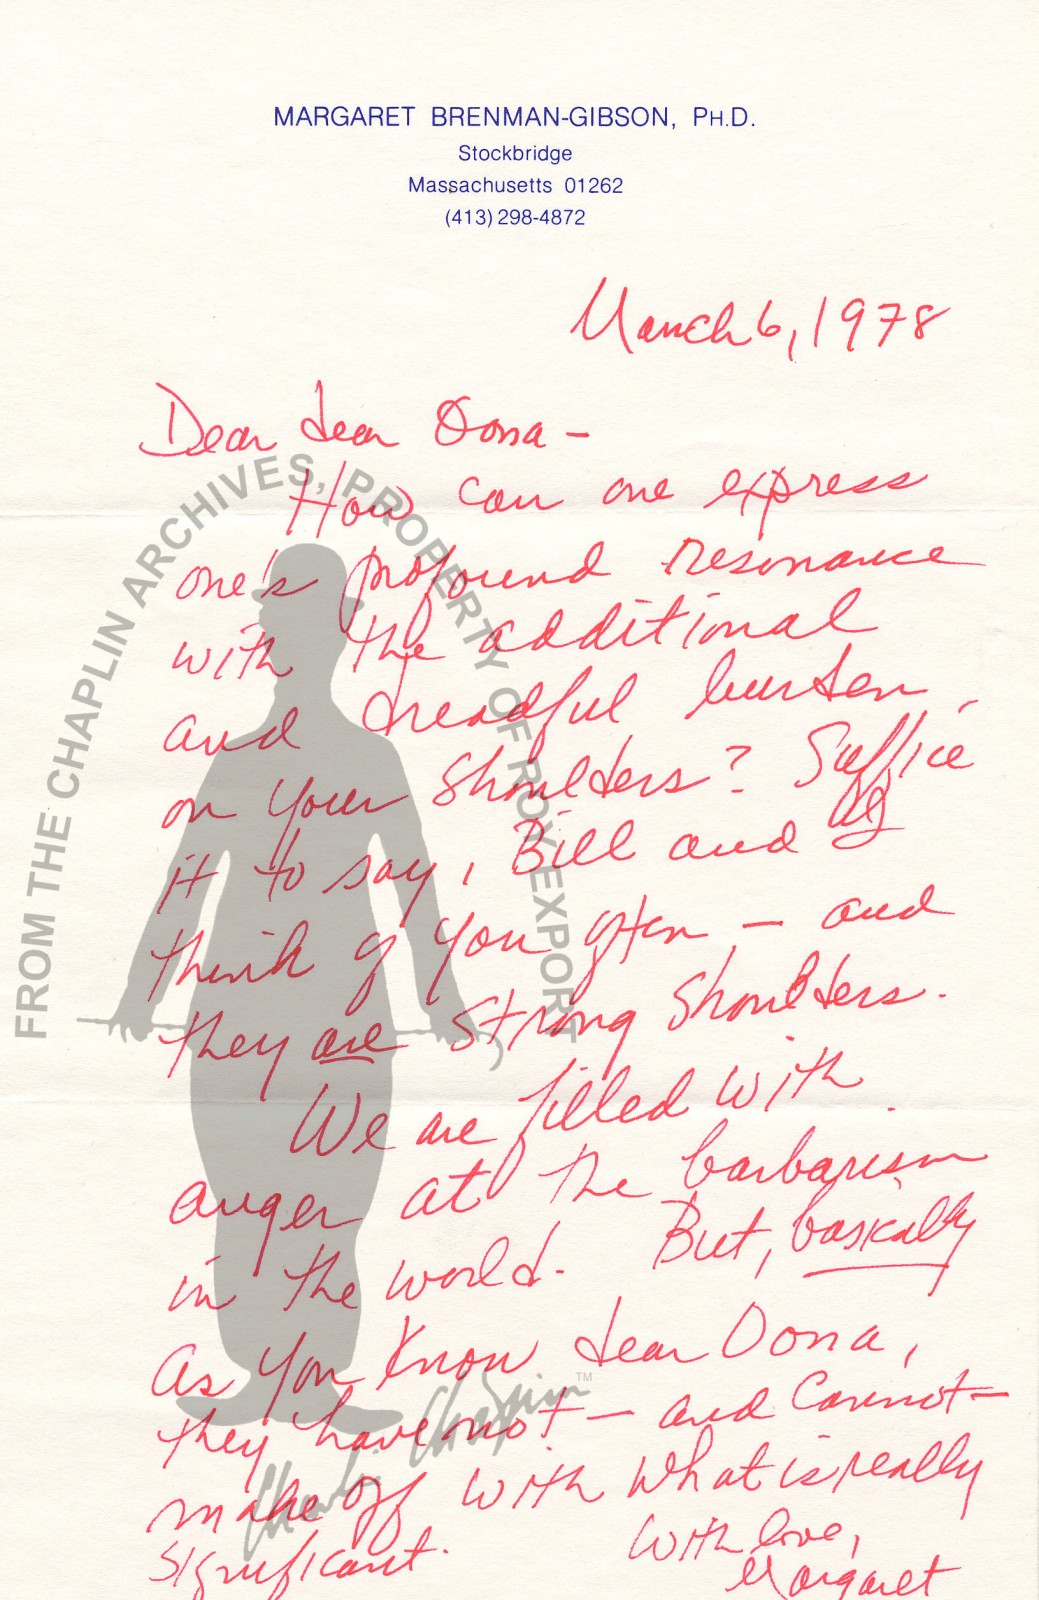 MARGARET BRENMAN-GIBSON, PH.D.
Stockbridge
Massachusetts 01262
(413) 298-4872
March 6, 1978
Dear dear Oona -
How can one express
one's profound resonance
with the additional
and dreadful burden
on your shoulders? Suffice
it to say, Bill and
think of you often - and
they are strong shoulders.
We are filled with
anger at the barbarism
in the world. But, basically
as you know dear Oona,
they have not - and cannot -
make off with what is really
significant.
With love,
Margaret
FROM THE CHAPLIN ARCHIVES, PROPERTY OF ROY EXPORT
Charlie Chaplin TM